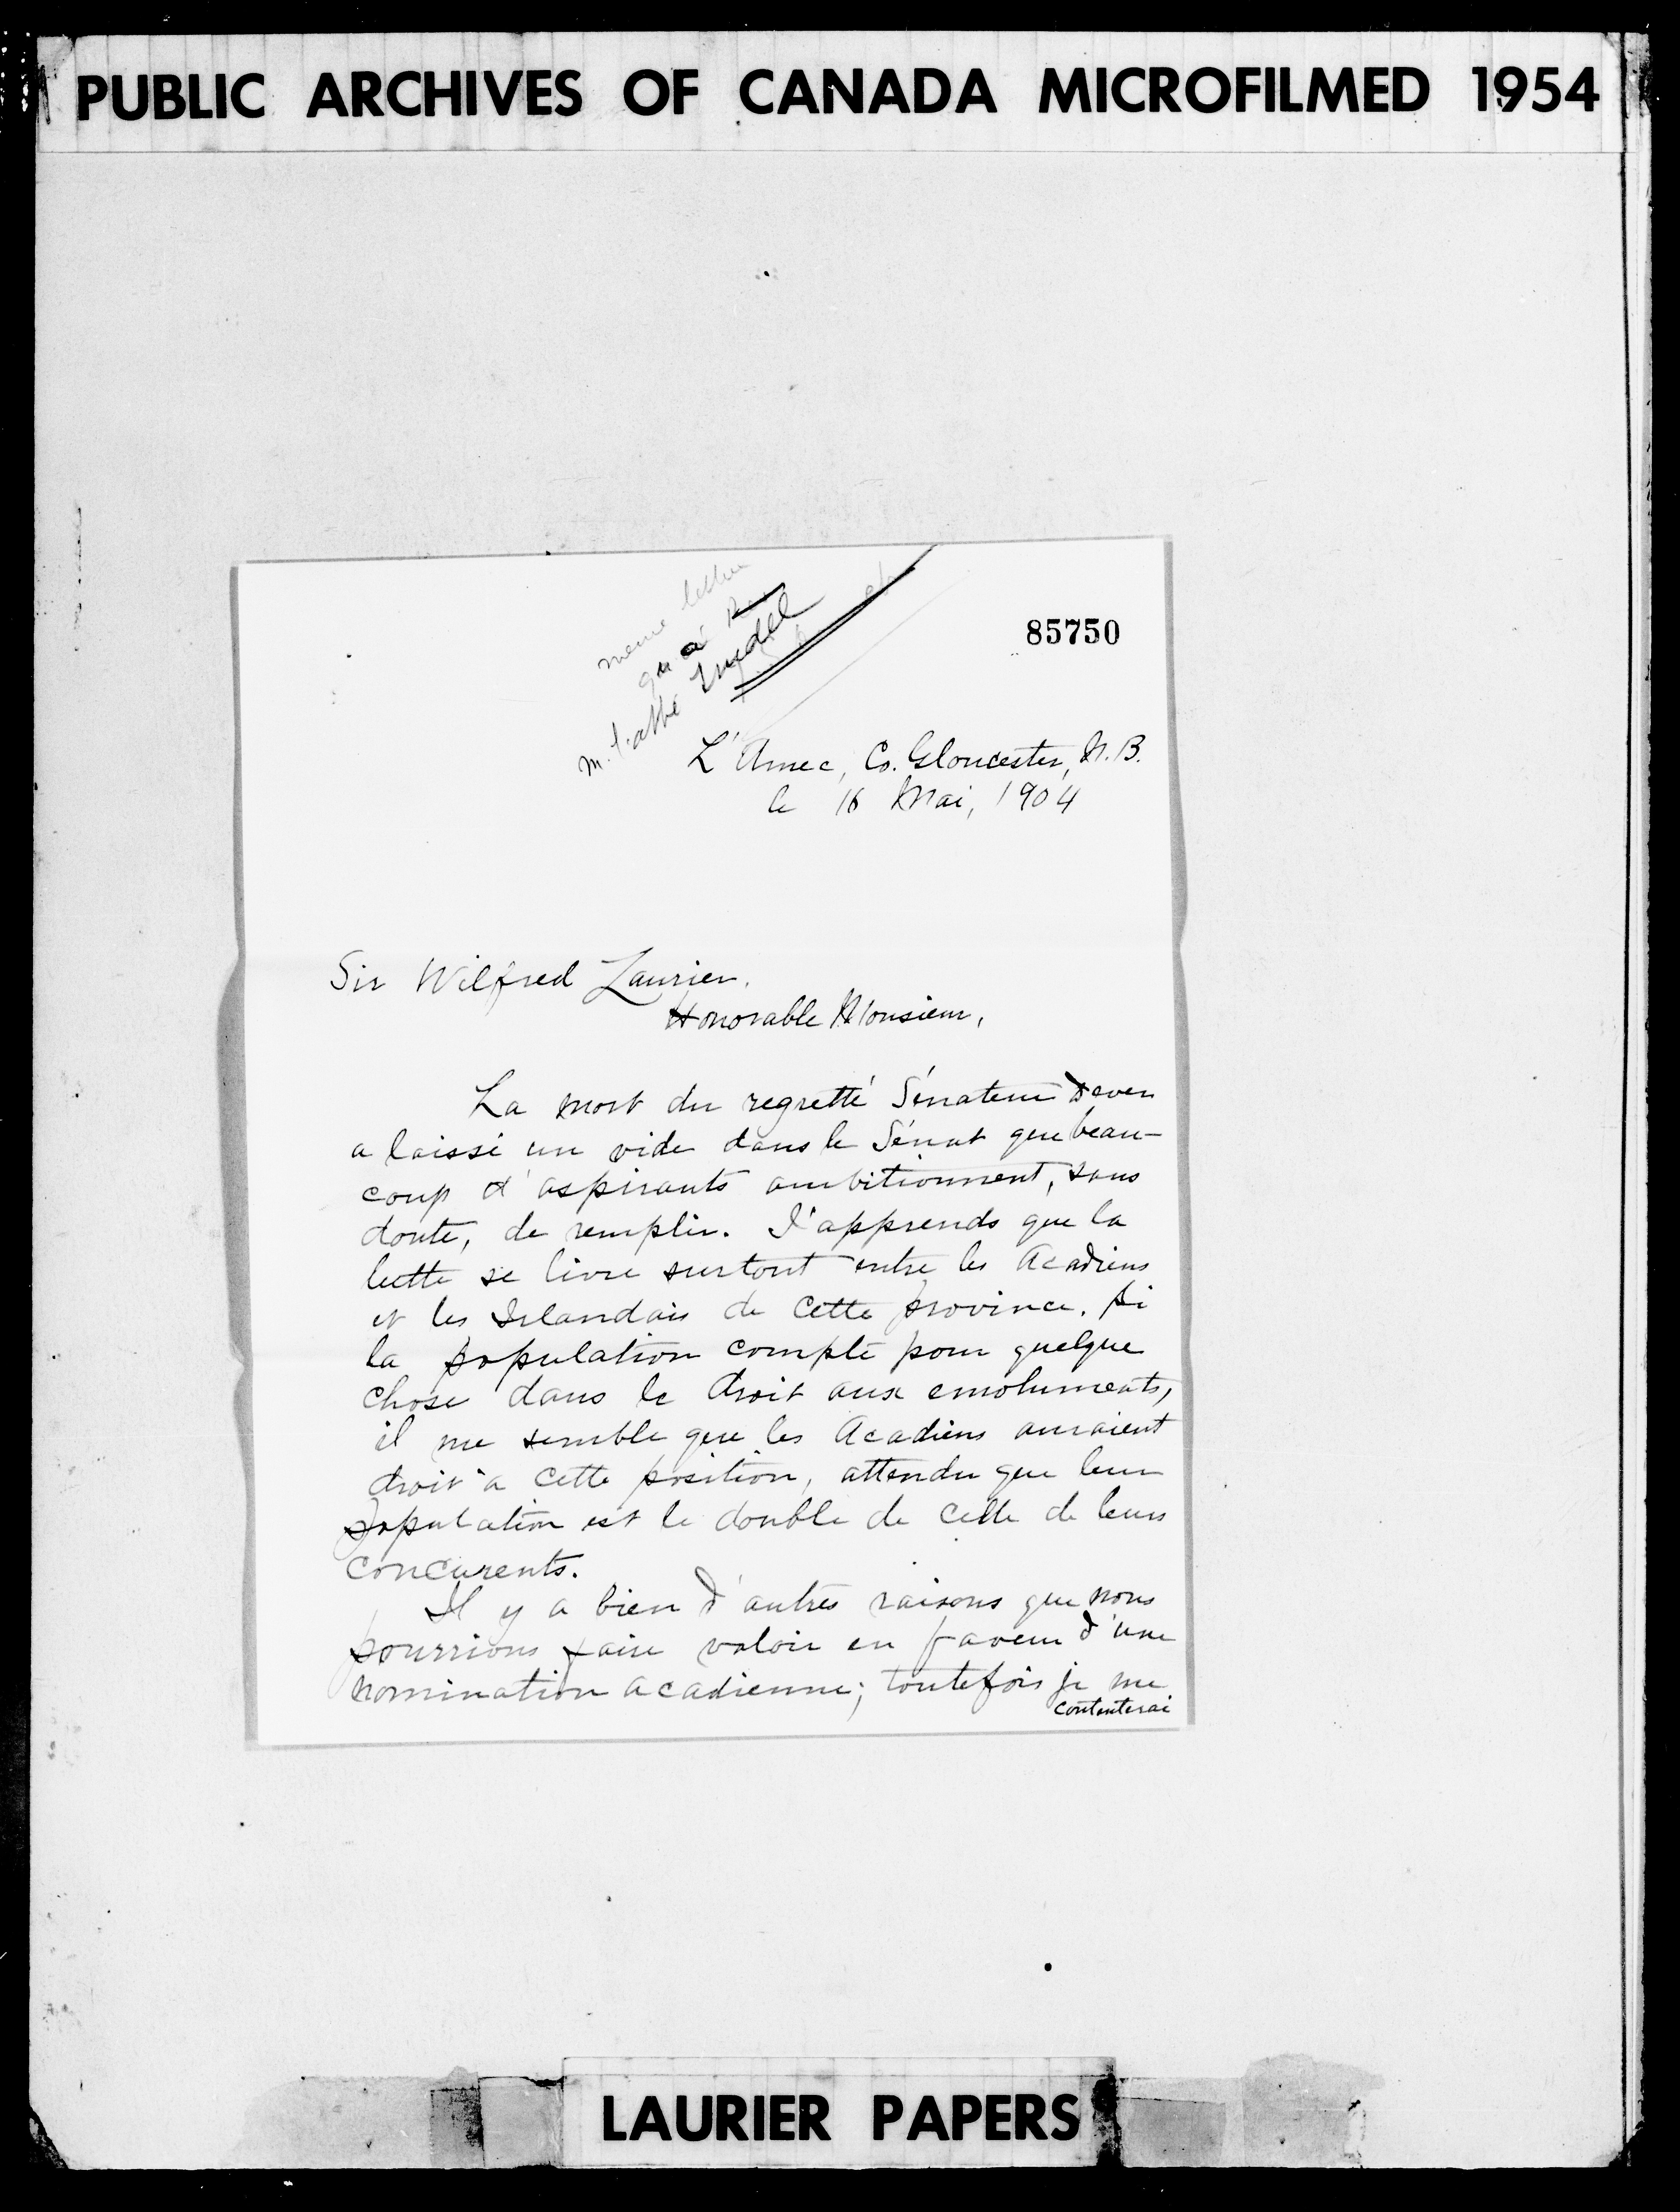 PUBLIC ARCHIVES OF CANADA MICROFILMED 1954
même lettre
qu'à
M. l'abbé Trudel
85750
L'Amec, Co. Gloucester, N.B.
le 16 Mai, 1904
Sir Wilfred Laurier.
Honorable Monsieur,
La mort du regretté Sénateur Dever
a laissé un vide dans le Sénat que beau-
coup d'aspirants ambitionnent, sans
doute, de remplir. J'apprends que la
lutte se livre surtout entre les Acadiens
et les Irlandais de cette province. Si
la population compte pour quelque
chose dans le droit aux emoluments,
il me semble que les Acadiens auraient
droit à cette position, attendu que leur
population est le double de celle de leurs
concurents.
Il y a bien d'autres raisons que nous
pourrions faire valoir en faveur d'une
nomination acadienne; toutefois je me
contenterai
LAURIER PAPERS